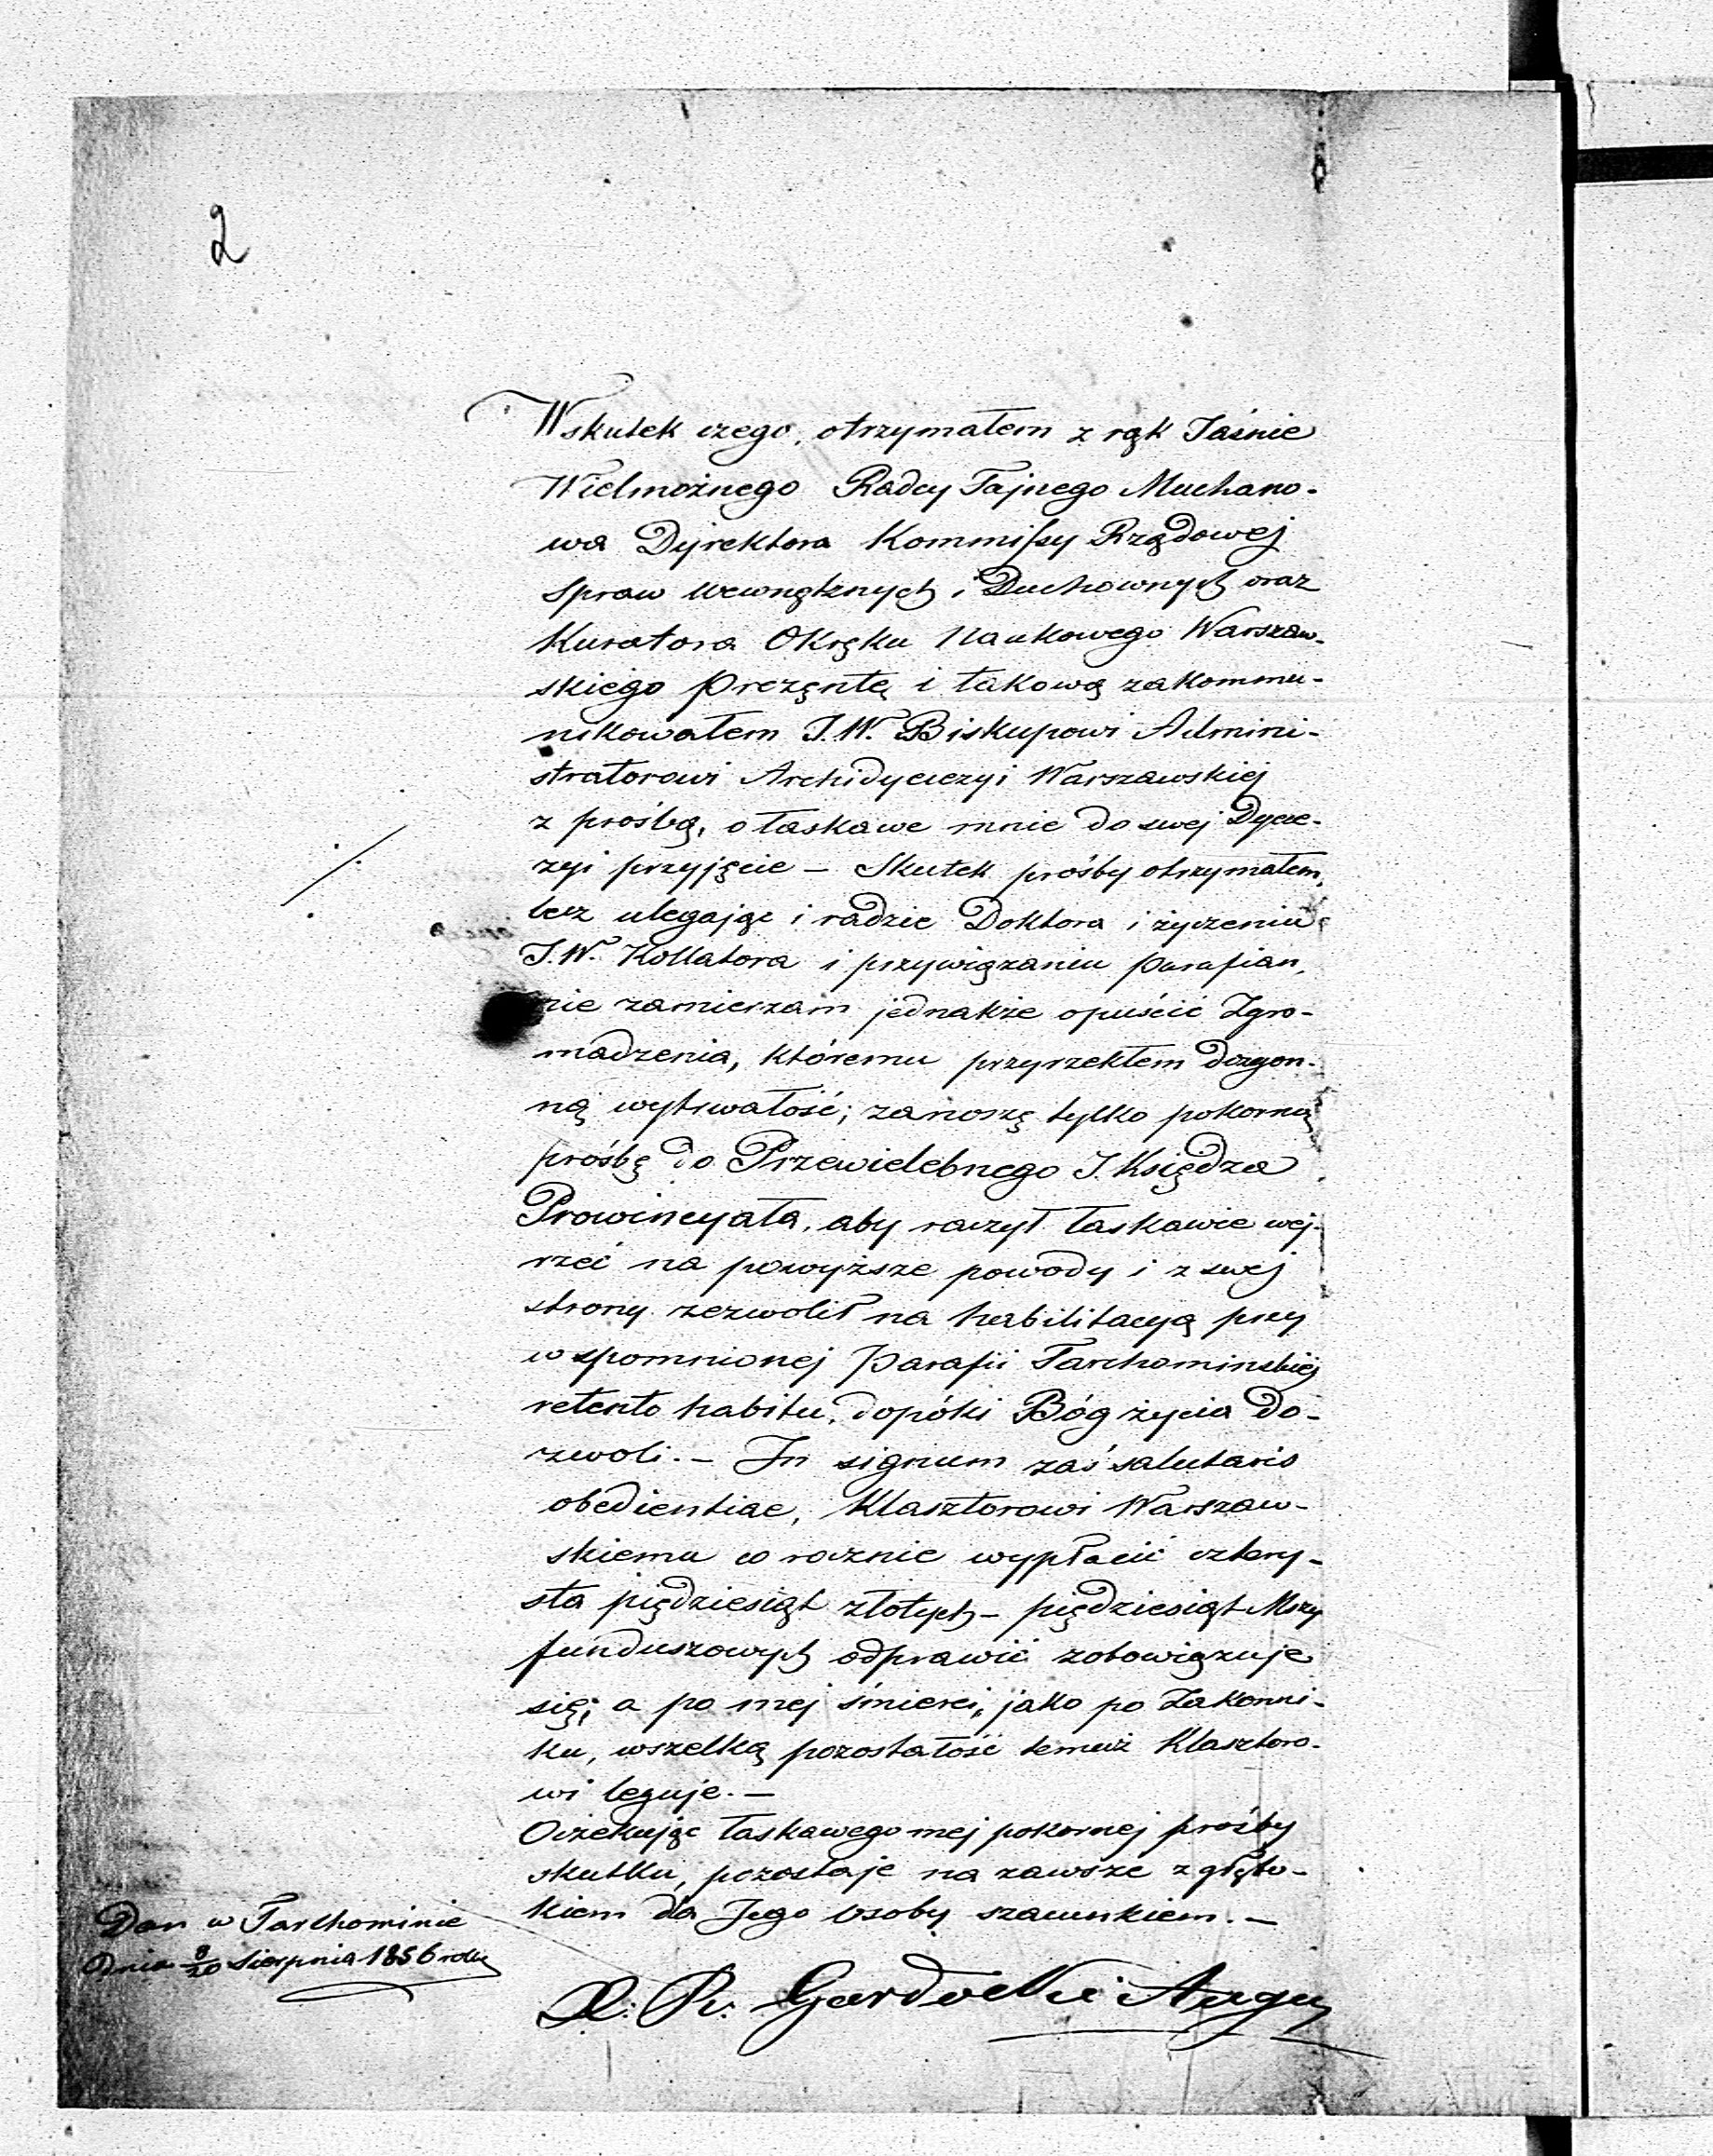 2
Wskutek czego, otrzymałem z rąk Jaśnie
Wielmożnego Radcy Tajnego Muchano-
wa Dyrektora Kommissyi Rządowej
Spraw Wewnętrznych i Duchownych oraz
Kuratora Okręku Naukowego Warszaw-
skiego prezentę i takową zakommu-
nikowałem J.W. Biskupowi Admini-
stratorowi Archidyecezyi Warszawskiej
z prośbą, o łaskawe mnie do swej Dyece-
zyi przyjęcie – Skutek prośby otrzymałem,
lecz ulegając i radzie Doktora i życzeniu
J.W. Kollatora i przywiązaniu parafian,
nie zamierzam jednakże opuścić Zgro-
madzenia, któremu przyrzekłem dozgon-
ną wytrwałość; zanoszę tylko pokorną
prośbę do Przewielebnego J. Księdza
Prowincyała, aby raczył łaskawie wej-
rzeć na powyższe powody i z swej
strony zezwolił na habilitacyą przy
wspomnionej Parafii Tarchominskiej
retento habitu, dopóki Bóg życia do-
zwoli. – In signum zaś salutaris
obedientiae, Klasztorowi Warszaw-
skiemu co rocznie wypłacić cztery-
sta pięćdziesiąt złotych – pięćdziesiąt Mszy
funduszowych odprawić zobowiązuje
się; a po mej śmierci, jako po Zakonni-
ku, wszelką pozostałość temuż Klasztoro-
wi leguje. –
Oczekując łaskawego mej pokornej prośby
skutku, pozostaje na zawsze z głębo-
kiem dla Jego Osoby szacunkiem. –
Dan w Tarchominie
Dnia 8/20 Sierpnia 1856 roku
X. Pr. Gardocki Augu